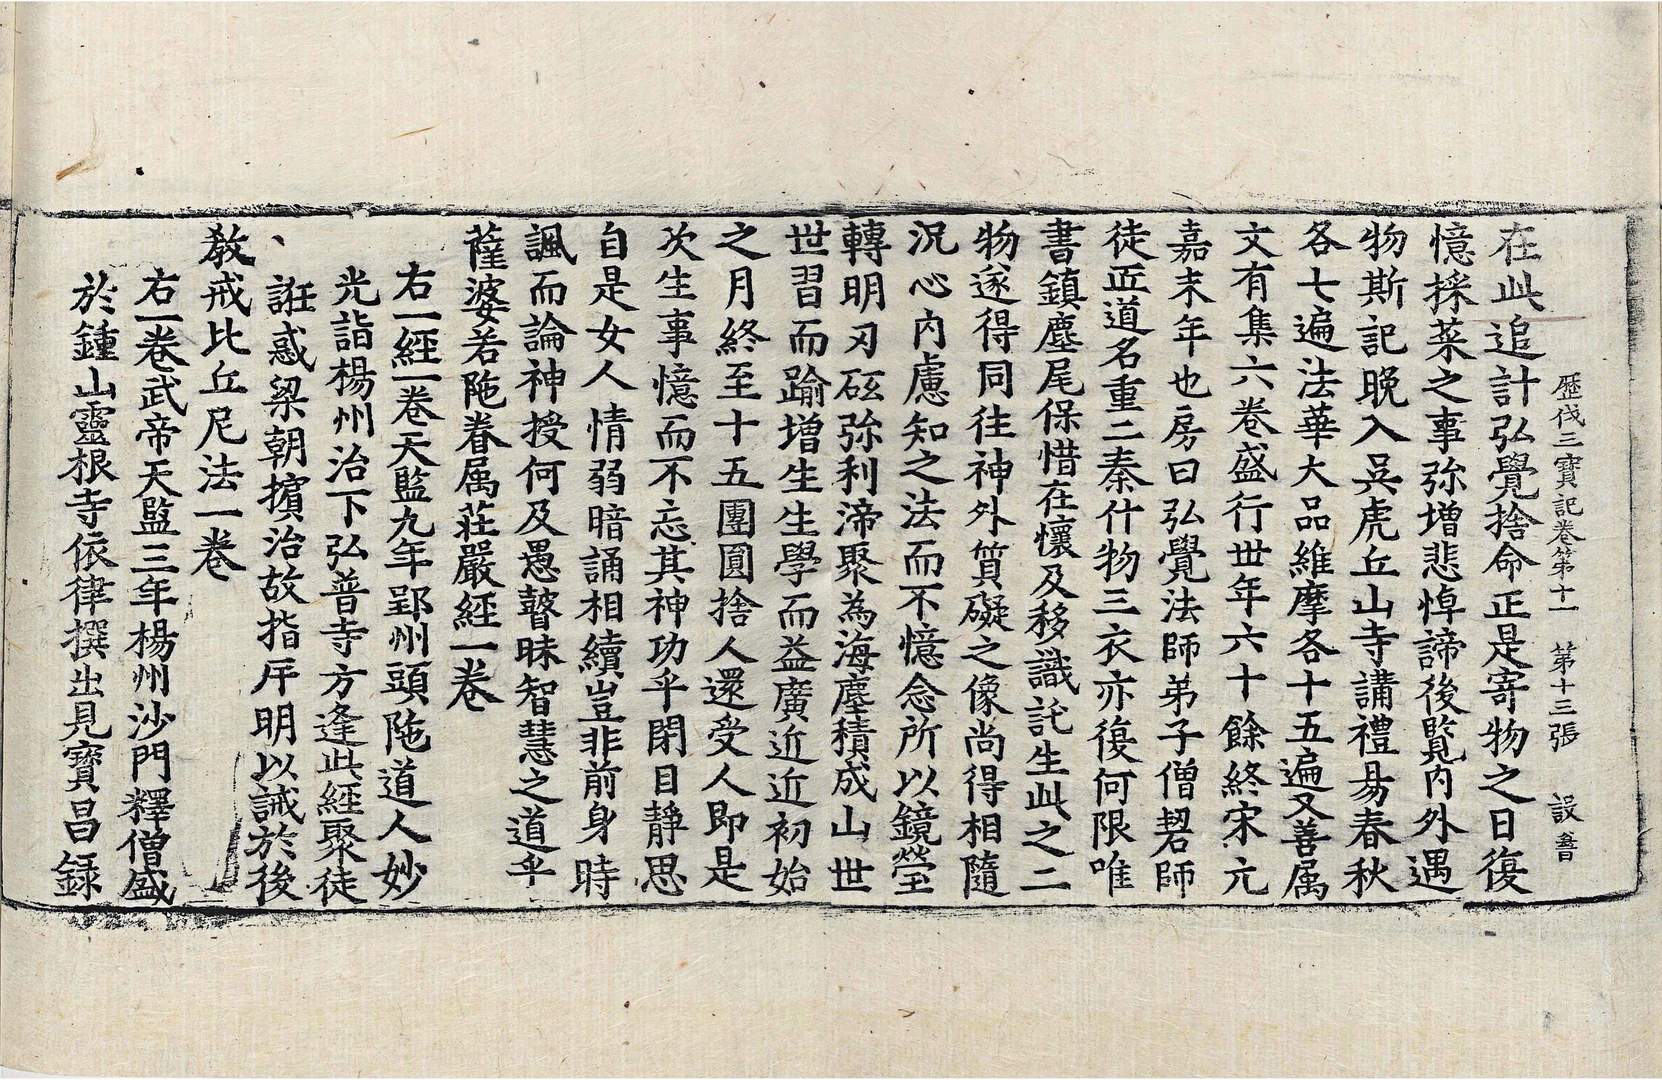 歷代三寶記卷第十一 第十三張 設
在此追計弘覺捨命正是寄物之日復
憶採菜之事弥增悲悼諦後覽內外遇
物斯記晚入吳虎丘山寺講禮易春秋
各七遍法華大品維摩各十五遍又善属
文有集六卷盛行世年六十餘終宋元
嘉末年也房曰弘覺法師弟子僧䂮師
徒匠道名重二秦什物三衣亦復何限唯
書鎮麈尾保惜在懷及移識託生此之二
物遂得同往神外質礙之像尚得相隨
況心內慮知之法而不憶念所以鏡瑩
轉明刃砥弥利渧聚為海塵積成山世
世習而踰增生生學而益廣近近初始
之月終至十五團圓捨人還受人即是
次生事憶而不忘其神功乎閉目靜思
自是女人情弱暗誦相續豈非前身時
諷而論神授何及愚瞽昧智慧之道乎
薩婆若陁眷属莊嚴經一卷
右一經一卷天監九年郢州頭陁道人妙
光詣楊州治下弘普寺方逢此經聚徒
誑惑梁朝擯治故指斥明以誡於後
教戒比丘尼法一卷
右一卷武帝天監三年楊州沙門釋僧盛
於鍾山靈根寺依律撰出見寶昌録